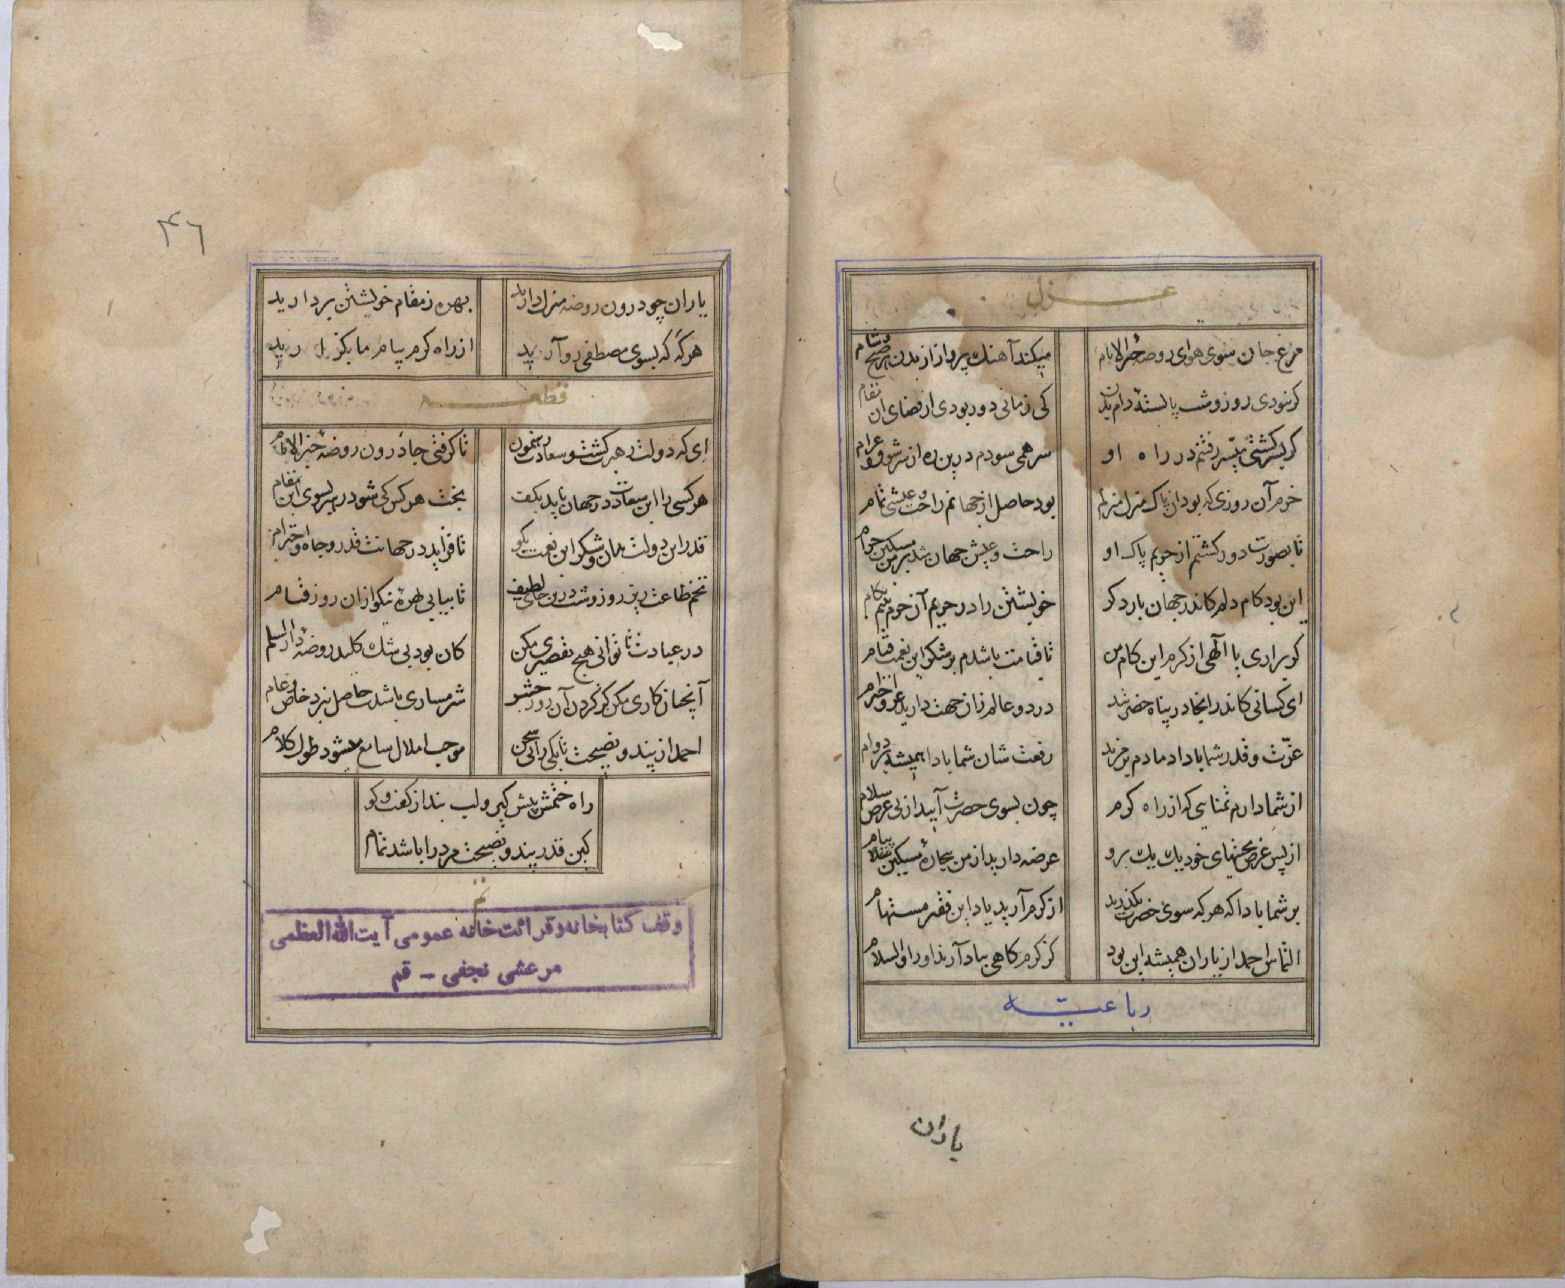 غزل
مرغ جان سوی هوای روضهٔ خیر الانام میکند آهنگ پرواز از بدن هر صبح و شام
کرنبودی روز و شب پا بستهٔ دام بدن کی زمانی دور بودی از فضای آن مقام
کر بسر کشتی میسر رفتنم در راه او سر همی سودم درین ره از سر شوق و غرام
خرم آن روزی که بود آن پاک منزل منزلم بود حاصل از جهانم راحت و عیش تمام
تا بصورت دور کشتم از حریم پاک او راحت و عیش جهان شد بر من مسکین حرام
این بود کام دلم کاندر جهان بار دکر خویشتن را در حریم آن حرم بینم بکام
کر براری یا آلهی از کرم این کام من تا قیامت باشدم بر شکر این نعمت قیام
ای کسانی کاندر اینجا در پناه حضرتید در دو عالم زان جهت دارید عز و احترام
عزّت و قدر شما بادا دمادم بر مزید رفعت شان شما بادا همیشه بر دوام
از شما دارم تمناسی که از راه کرم چون بسوی حضرت آیید از پی عرض سلام
از پس عرض تحیتهای خود یک یک برو عرضه دارید از من بیچارهٔ مسکین پیام
بر شما بادا که هر که سوی حضرت بکذرید از کرم آرید یاد این فقیر مستهام
التماس احمد از یاران همیشه این بود کز کرم کاهی بیاد آرند او را والسلام
رباعیّه
یاران
۴۶
یاران چو درون روضه منزل دارید بهره ز مقام خویشتن بردارید
هر کَه که بسوی مصطفی رو آرید از راه کرم پیام ما بکزارید
قطعه
ای که دولت رهبرت کشت و سعادت رهنمون تا کرفتی جا درون روضهٔ خیر الانام
هر کسی را این سعادت در جهان ناید بکف بخت هر کس کی شود رهبر بسوی این مقام
قدر این دولت بدان و شکر این نعمت بکو تا فزاید در جهانت قدر و جاه و احترام
تخم طاعت ریز روز و شب درین جای لطیف تا بیابی بهرهٔ نیکو ازان روز قیام
در عبادت تا توانی هیچ تقصیری مکن کان بود بی شک کلید روضهٔ دار السلم
آنچنان کاری مکن کز کردن آن روز حشر شرمساری باشدت حاصل بنزد خاص و عام
احمد از پند و نصیحت تا بکی رانی سخن موجب املال سامع میشود طول کلام
راه ختمش پیش کیر و لب بند از کفت و کو
کین قدر پند و نصیحت مرد را باشد تمام
تم
وقف کتابخانه و قرائت خانه عمومی آیت الله العظمی
مرعشی نجفی - قم